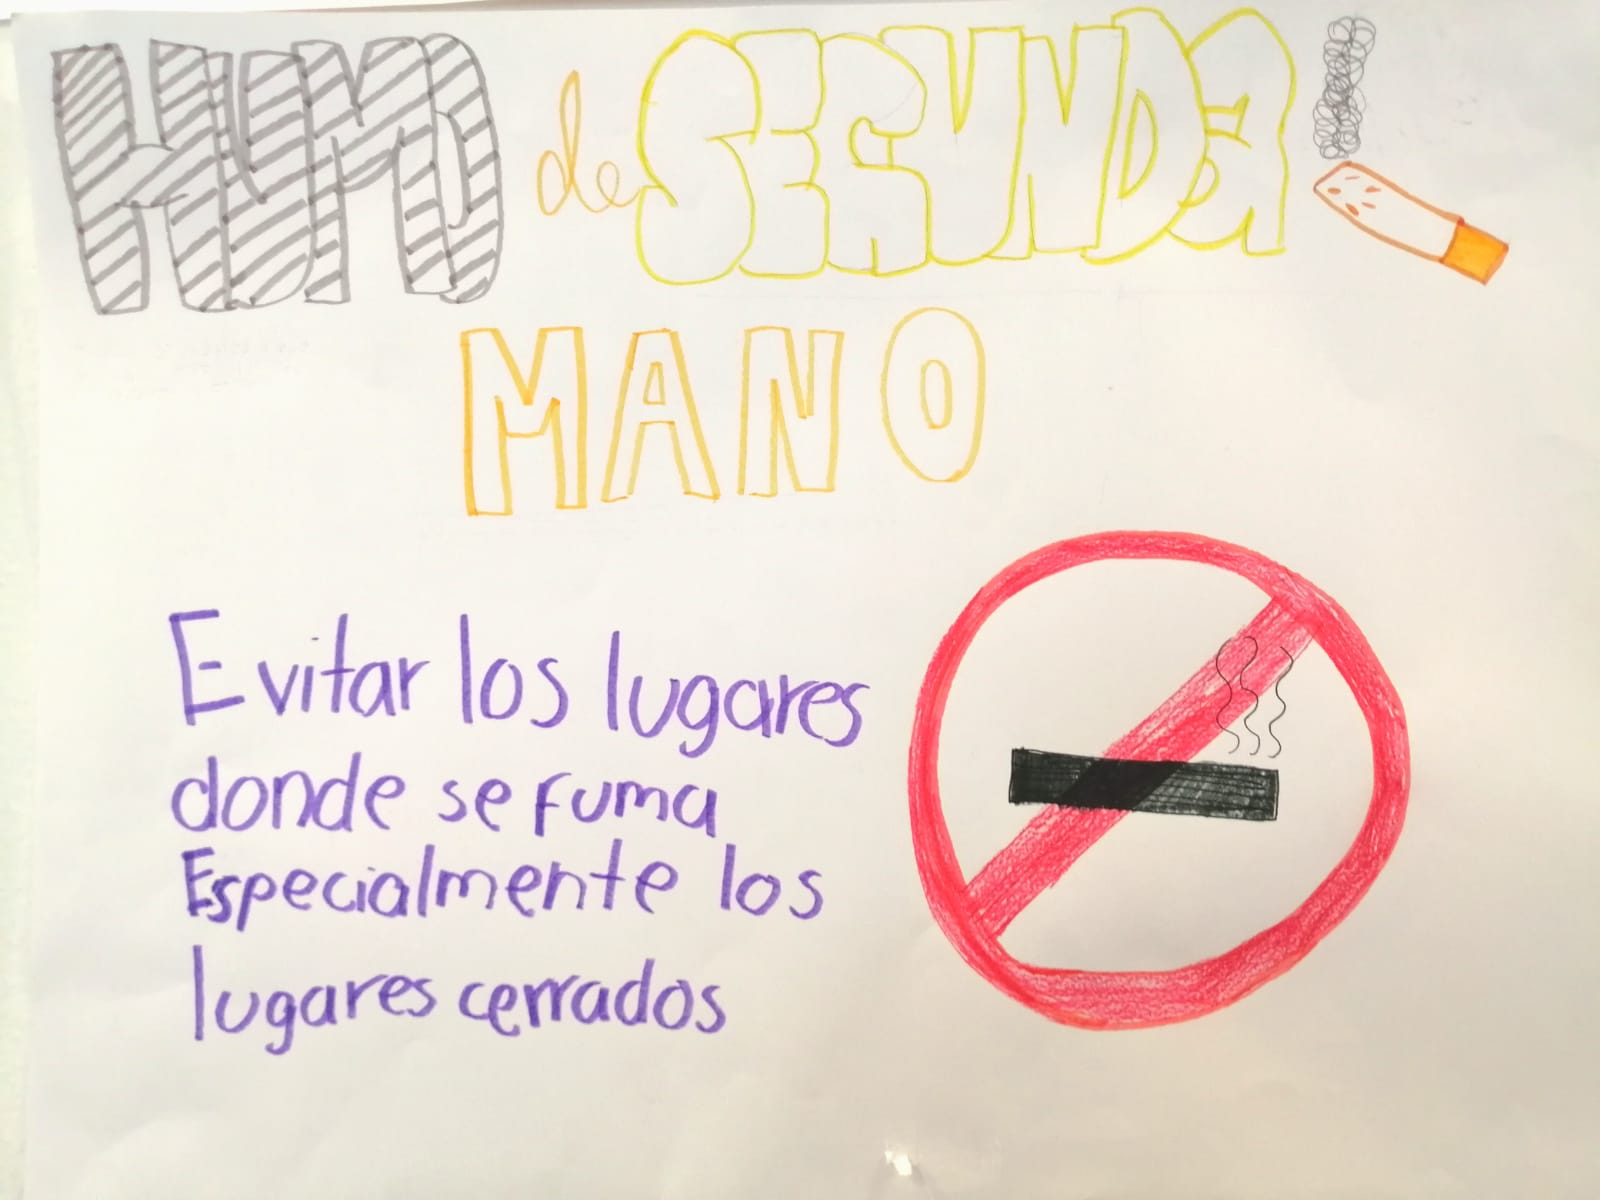 HUMO de SEGUNDA
MANO
Evitar los lugares
donde se fuma
Especialmente los
lugares cerrados